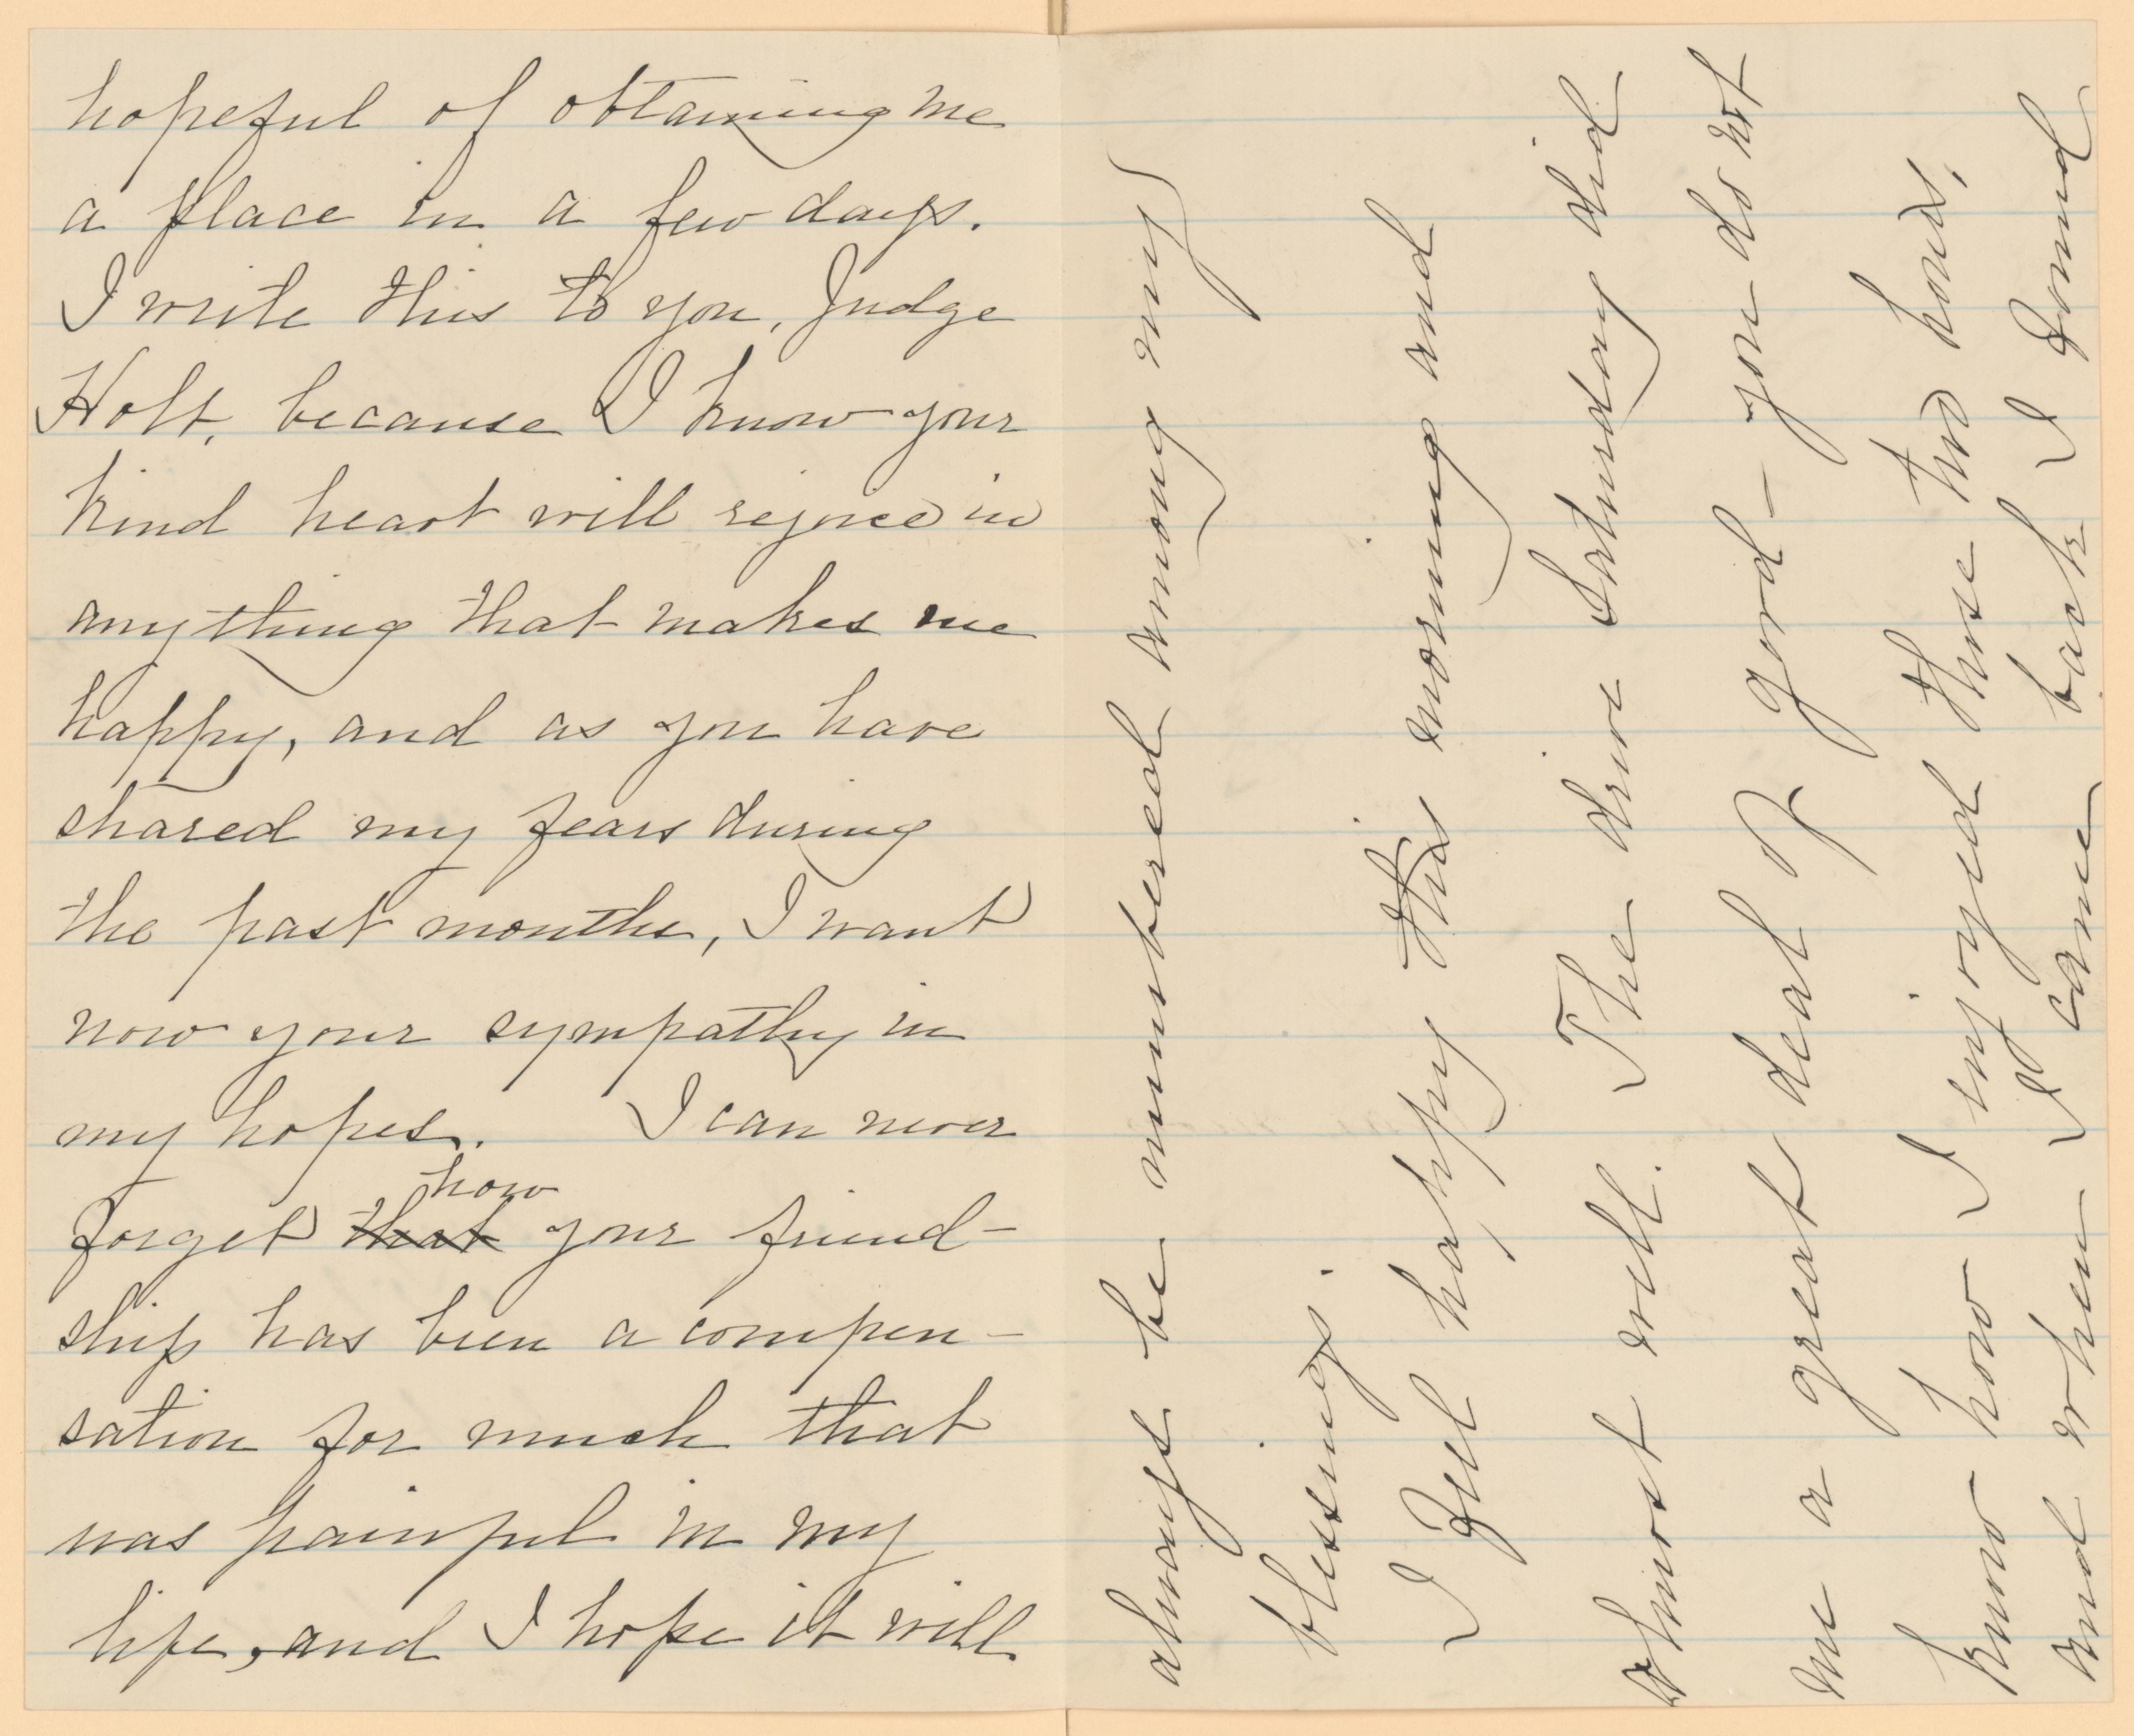 hopeful of obtaining me
a place in a few days.
I write this to you, Judge
Holt, because I know your
kind heart will rejoice in
anything that makes me
happy, and as you have
shared my fears during
the past months, I want
now your sympathy in
my hopes. I can never
how
forget that your friend-
ship has been a compen-
sation for much that
was painful in my
life, and I hope it will
always be numbered among my
blessings.
I feel happy this morning and
almost well. The drive Saturday did
me a great deal of good - you do not
know how I enjoyed those two hours,
and when I came back I found